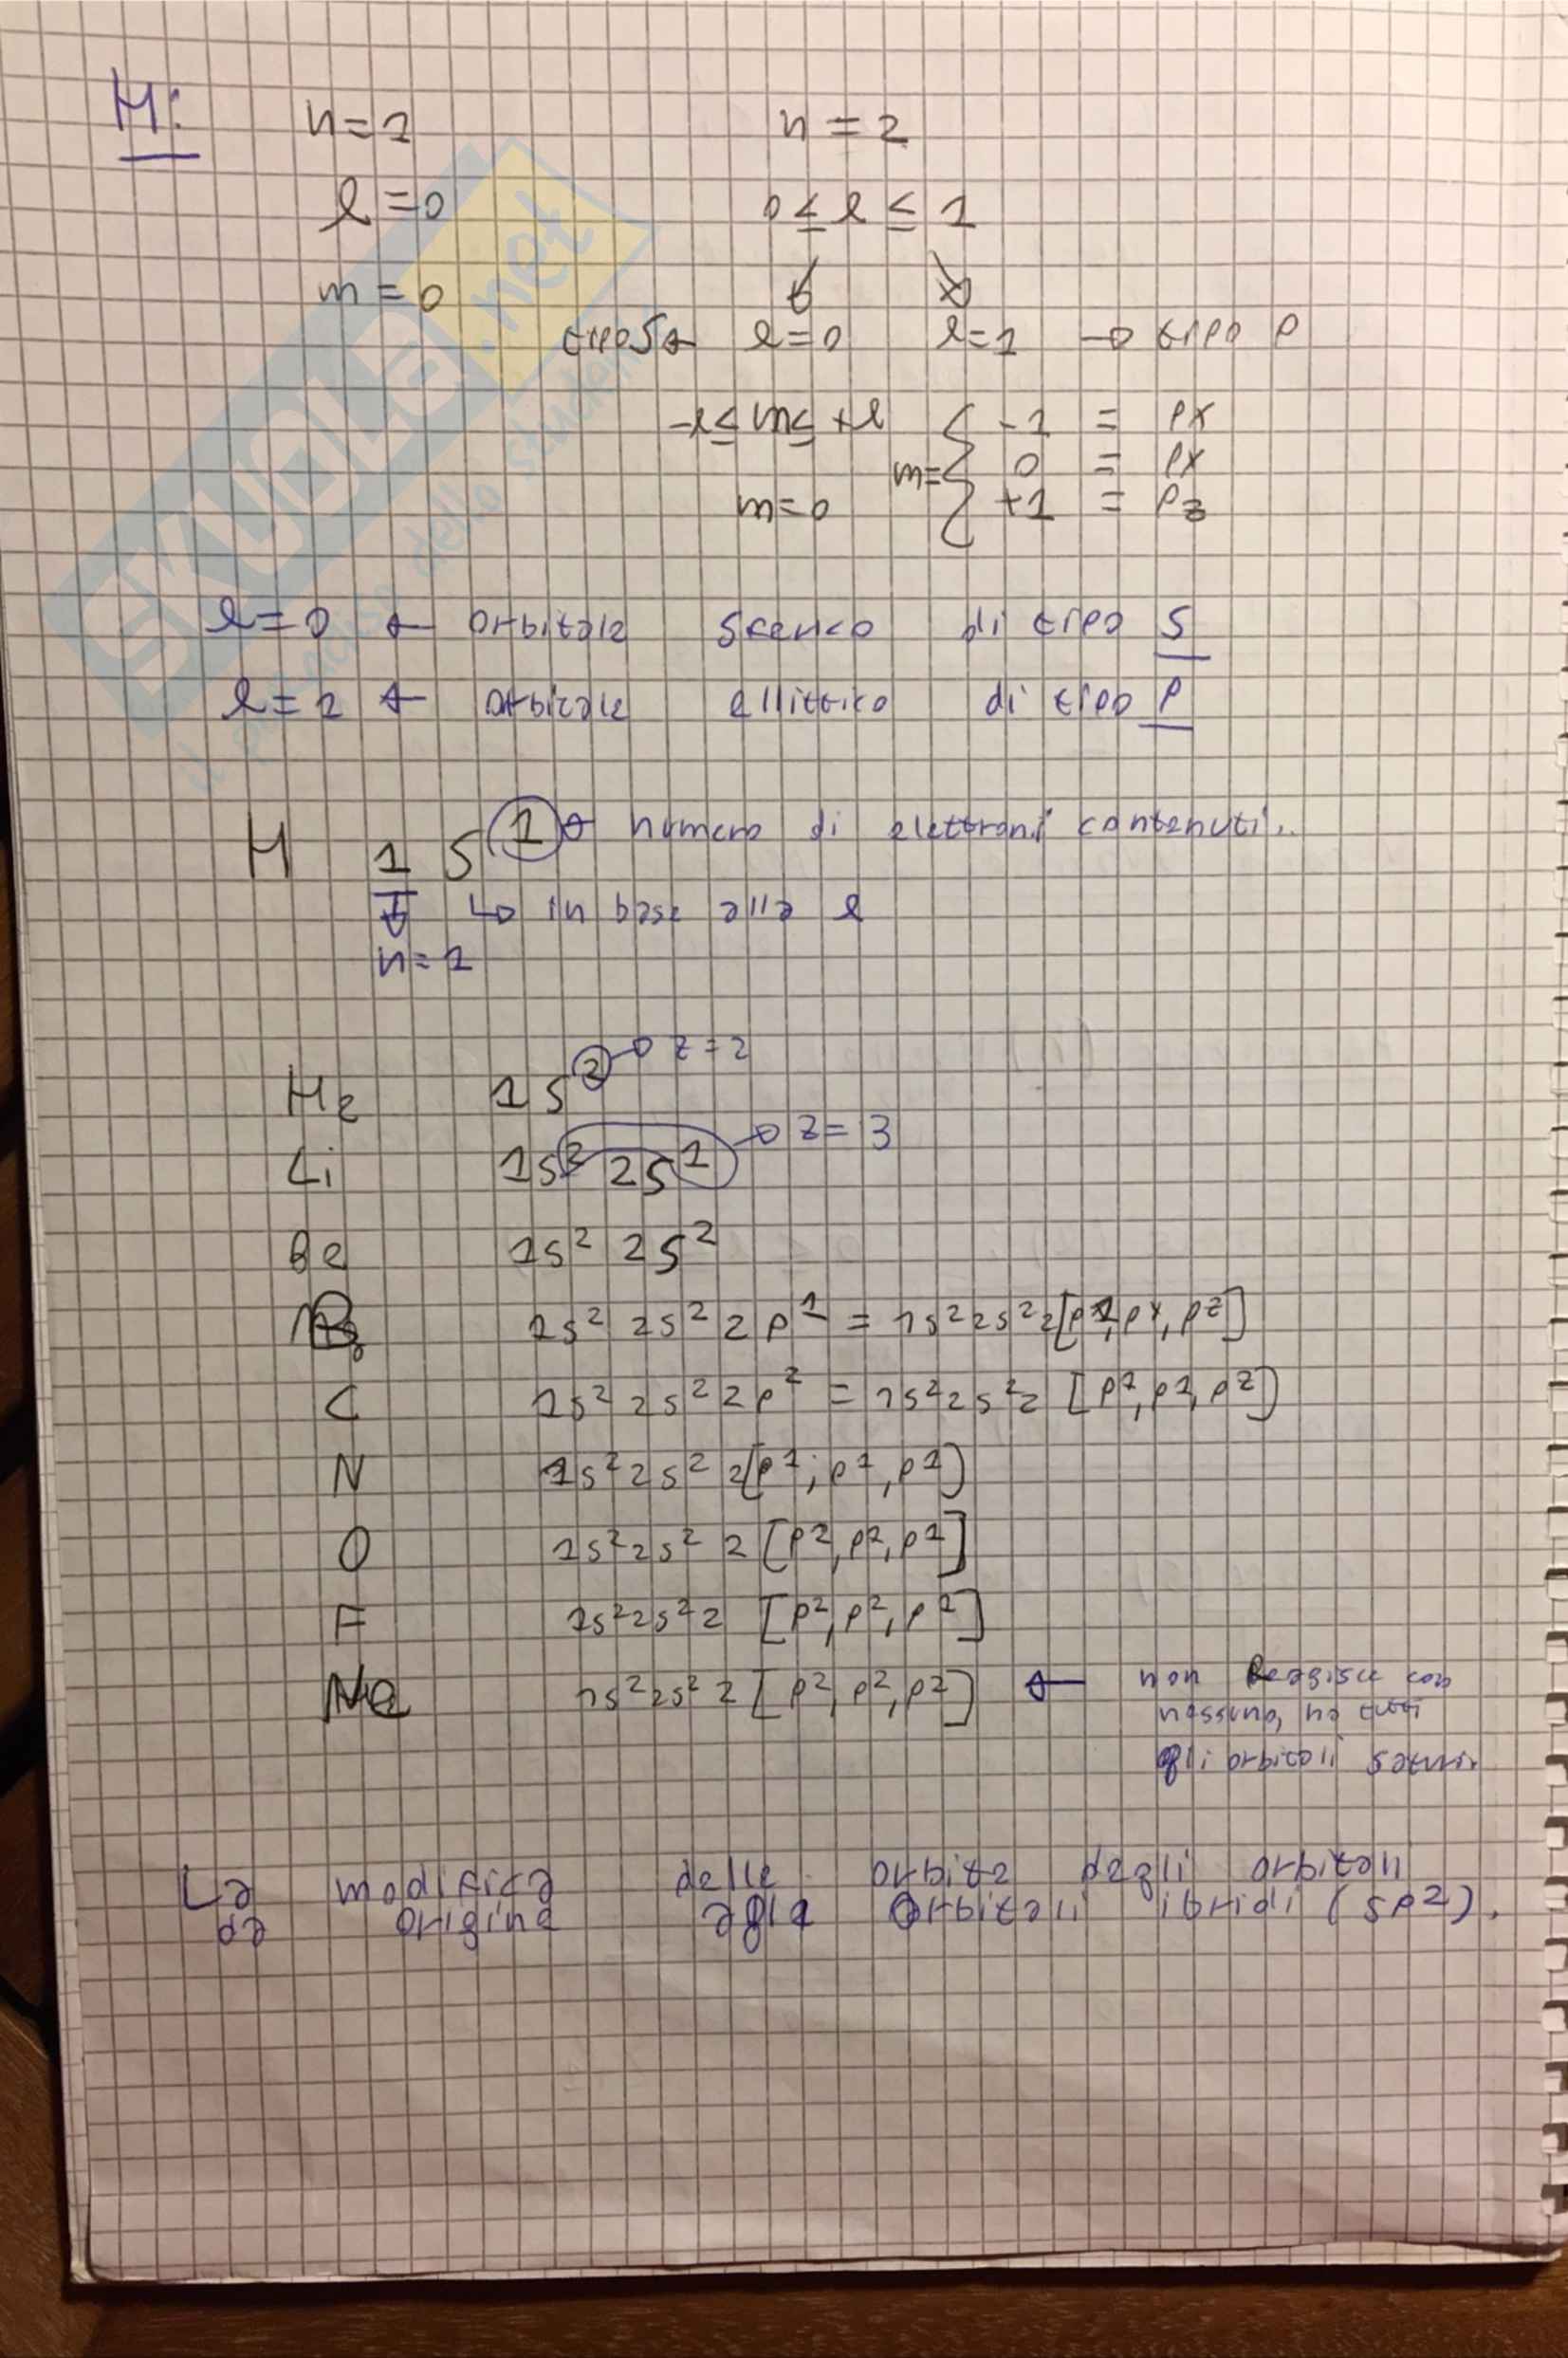 H: n=1 n=2
l=0 0≤l≤1
m=0
tipo S ← l=0 l=1 → tipo P
-l≤m≤+l -1 = px
m= { 0 = px
m=0 +1 = pz
l=0 ← orbitale sferico di tipo S
l=1 ← orbitale ellittico di tipo P
H 1 s 1 → numero di elettroni contenuti.
↓ ↳ in base alla l
n=1
He 1s² → z=2
Li 1s² 2s¹ → z=3
Be 1s² 2s²
B 1s² 2s² 2p¹ = 1s² 2s² 2[p¹, pˣ, pᶻ]
C 1s² 2s² 2p² = 1s² 2s² 2[p¹, p¹, pᶻ]
N 1s² 2s² 2[p¹, p¹, p¹]
O 1s² 2s² 2[p², p², p¹]
F 1s² 2s² 2[p², p², p²]
Ne 1s² 2s² 2[p², p², p²] ← non Reagisce con
nessuno, ha tutti
gli orbitali saturi.
La modifica delle orbite degli orbitali
da origine agli orbitali ibridi (sp²).
SKUOLA.net
il paradiso dello studente